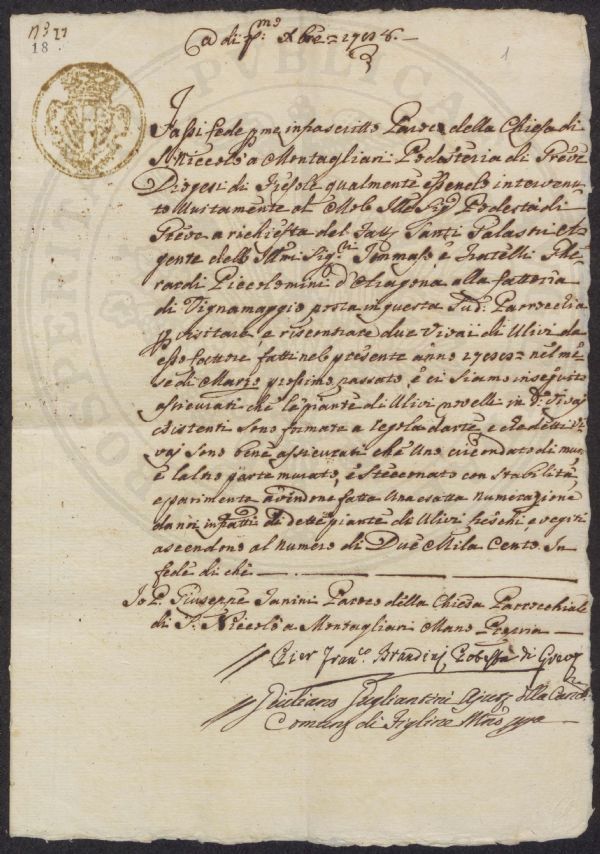 N° 27
18.
1
A di p.mo
Fassi fede p me infrascritto Paroco della Chiesa di
S. Niccolò a Montagliari Podesteria di Greve
Diogesi di Fiesole qualmente essendo intervenu
to unitamente al Nob. Ill. Sig. Podestà di
Greve a richiesta del Santi Palasni A
gente delli Ill.mi Sig.ri Tommaso e Fratelli Ghe
rardi Piccolomini d'Aragona alla fattoria
di Vignamaggio posta in questa Sud. Parrochia
p visitare, e riscontrare due Vivai di Ulivi da
esso fattore fatti nel presente anno nel me
se di Marzo prossimo passato, e ci siamo in seguito
assicurati che le piante di Ulivi novelli in d. Vivaj
esistenti sono a regola d'arte e che detti Vi
vaj sono bene assicurati che uno circondato di muro
e l'altro parte murato, e stecconato con stabilità
e parimente avendone fatta una esatta numerazione
da noi infatti di dette piante di Ulivi freschi e vegeti
ascendono al numero di Due Mila Cento In
fede di che
Io P. Giuseppe Janini Paroco della Chiesa Parrocchiale
di S. Niccolò a Montagliari Mano Propria
Pier Fran.co Brandini Podestà di Greve
Giuliano Gagliantini della
Comun di Figline Mno ppa
PVBLICA